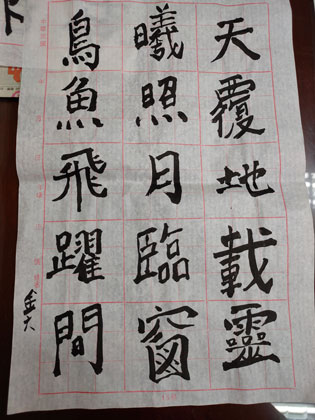 天覆地載靈
曦照月臨窗
鳥魚飛躍間